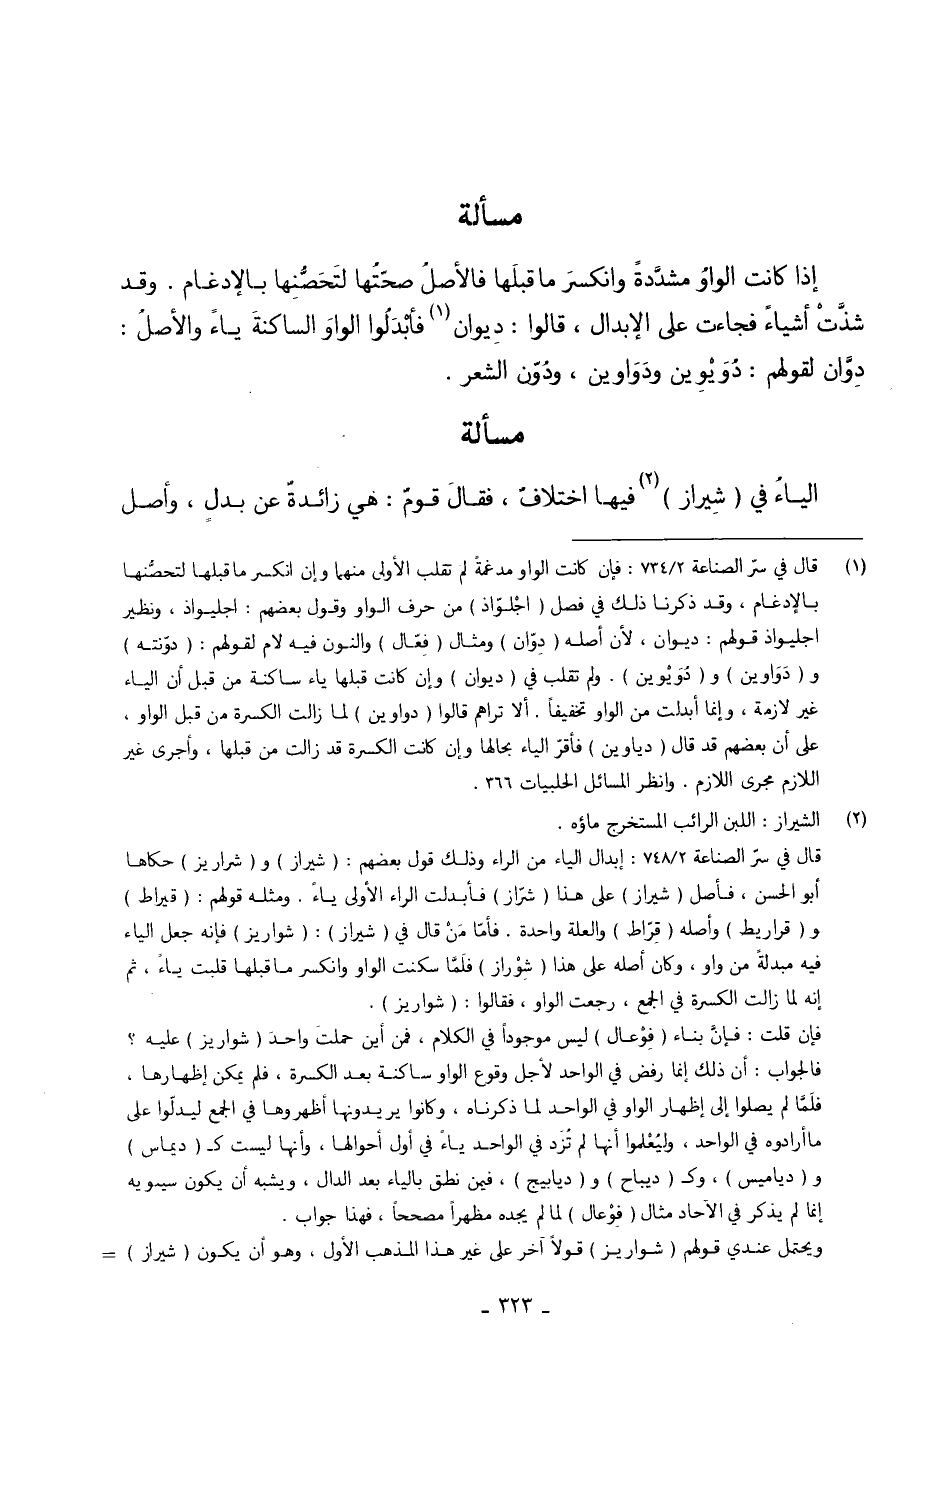 مسألة
إذا كانت الواوُ مشدَّدةً وانكسرَ ماقبلَها فالأصلُ صحّتُها لتَحَصُّنِها بـالإدغـام . وقـد
شذَّتْ أشياءُ فجاءت على الإبدال ، قالوا : دِيوان (١) فأبْدَلُوا الواوَ السـاكنةَ يـاءً والأصلُ :
دِوَّان لقولهم : دُوَيْوِين ودَوَاوين ، ودُوّن الشعر .
مسألة
اليـاءُ في ( شِيراز ) (٢) فيهـا اختلافٌ ، فقـالَ قـومٌ : هي زائـدةٌ عن بـدلٍ ، وأصـل
(١) قال في سرّ الصناعة ٧٣٤/٢ : فإن كانت الواو مدغمةً لم تقلب الأولى منهما وإن انكسـر ماقبلهـا لتحصُّنهـا
بـالإدغـام ، وقـد ذكرنـا ذلـك في فصل ( اجْلوّاذ ) من حرف الـواو وقول بعضهم : اجليـواذ ، ونظير
اجليـواذ قـولهم : ديـوان ، لأن أصلـه ( دِوّان ) ومثـال ( فِعّـال ) والنـون فيـه لام لقـولهم : ( دوّنتـه )
و ( دَوَاوين ) و ( دُوَيْوين ) . ولم تقلب في ( ديوان ) وإن كانت قبلها ياء سـاكنة من قبل أن اليـاء
غير لازمة ، وإنما أبدلت من الواو تخفيفاً . ألا تراهم قالوا ( دواوين ) لمـا زالت الكسرة من قبل الواو ،
على أن بعضهم قد قال ( دياوين ) فأقرّ الياء بحالها وإن كانت الكسرة قد زالت من قبلها ، وأجرى غير
اللازم مجرى اللازم . وانظر المسائل الحلبيات ٣٦٦ .
(٢) الشيراز : اللبن الرائب المستخرج ماؤه .
قال في سرّ الصناعة ٧٤٨/٢ : إبدال الياء من الراء وذلـك قول بعضهم : ( شيراز ) و ( شراريز ) حكاهـا
أبو الحسن ، فـأصل ( شيراز ) على هـذا ( شرّاز ) فـأبـدلت الراء الأولى يـاءً . ومثلـه قولهم : ( قيراط )
و ( قراريط ) وأصله ( قرّاط ) والعلة واحدة . فأمّا مَنْ قال في ( شيراز ) : ( شواريز ) فإنه جعل الياء
فيه مبدلةً من واو ، وكان أصله على هذا ( شِوْراز ) فلمّا سكنت الواو وانكسر مـاقبلهـا قلبت يـاءً ، ثم
إنه لما زالت الكسرة في الجمع ، رجعت الواو ، فقالوا : ( شواريز ) .
فإن قلت : فـإنَّ بنـاء ( فِوْعال ) ليس موجوداً في الكلام ، فمن أين حملتَ واحدَ ( شواريز ) عليـه ؟
فـالجواب : أن ذلك إنما رفض في الواحد لأجل وقوع الواو سـاكنـة بعـد الكسرة ، فلم يمكن إظهـارهـا ،
فلمّا لم يصلوا إلى إظهار الواو في الواحد لما ذكرناه ، وكانوا يريدونها أظهروها في الجمع ليـدلّوا على
ماأرادوه في الواحد ، وليُعْلموا أنها لم تُزَد في الواحـد يـاءً في أول أحوالهـا ، وأنهـا ليست كـ ( ديماس )
و ( دياميس ) ، وكـ ( ديباج ) و ( ديابيج ) ، فيمن نطق بالياء بعد الدال ، ويشبه أن يكون سيبويه
إنما لم يذكر في الآحاد مثال ( فِوْعال ) لما لم يجده مظهراً مصححاً ، فهذا جواب .
ويحتمل عندي قولهم ( شـواريـز ) قـولاً آخر على غير هـذا المـذهب الأول ، وهـو أن يكـون ( شيراز ) =
- ٣٢٣ -